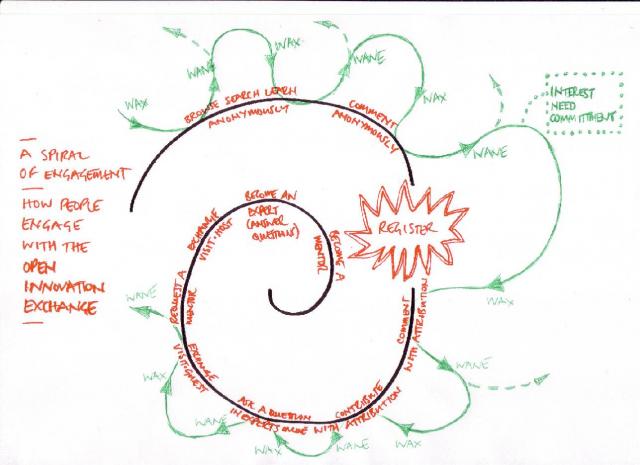 A SPIRAL
OF ENGAGEMENT
HOW PEOPLE
ENGAGE
WITH THE
OPEN
INNOVATION
EXCHANGE
WAX
WANE
WAX
WANE
WAX
WANE
WAX
INTEREST
NEED
COMMITTMENT
BROWSE SEARCH LEARN
ANONYMOUSLY
COMMENT
ANONYMOUSLY
REGISTER
COMMENT
WITH ATTRIBUTION
WANE
WAX
CONTRIBUTE
WITH ATTRIBUTION
WANE
WAX
ASK A QUESTION
WANE
WAX
EXCHANGE
VISIT: GUEST
WANE
REQUEST A
MENTOR
EXCHANGE
VISIT: HOST
BECOME AN
EXPERT
(ANSWER
QUESTIONS)
BECOME A
MENTOR